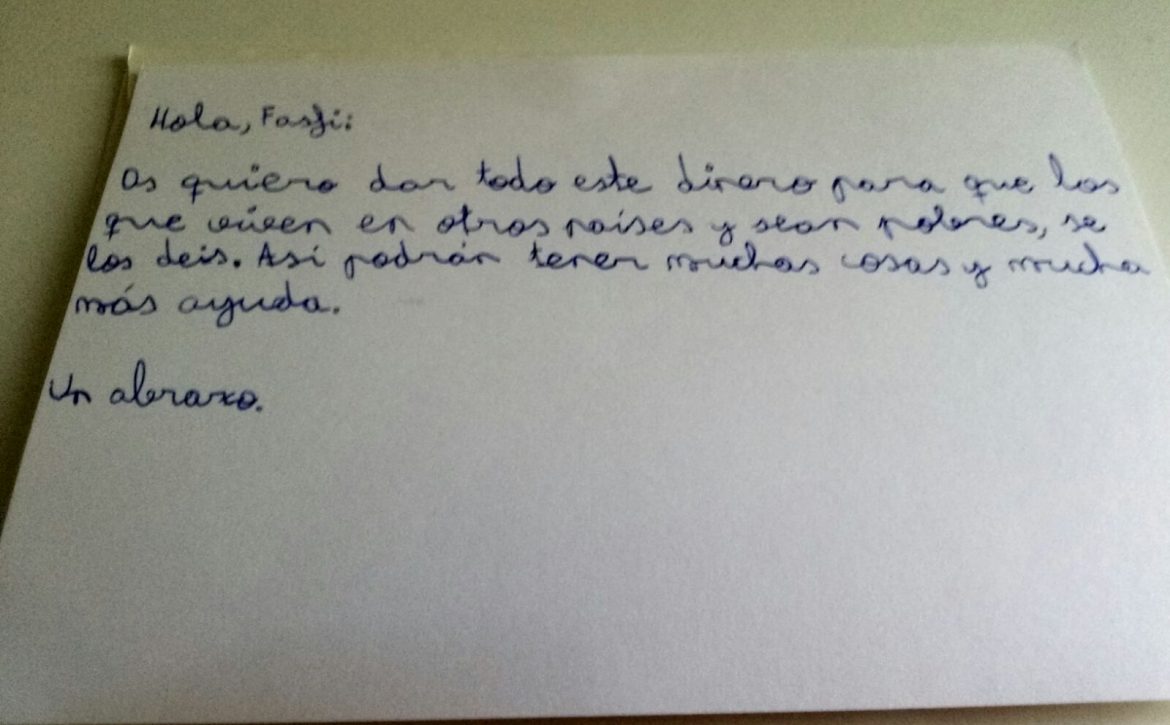 Hola, Fasfi:
Os quiero dar todo este dinero para que los
que viven en otros países y sean pobres, se
los deis. Así podrán tener muchas cosas y mucha
más ayuda.
Un abrazo.